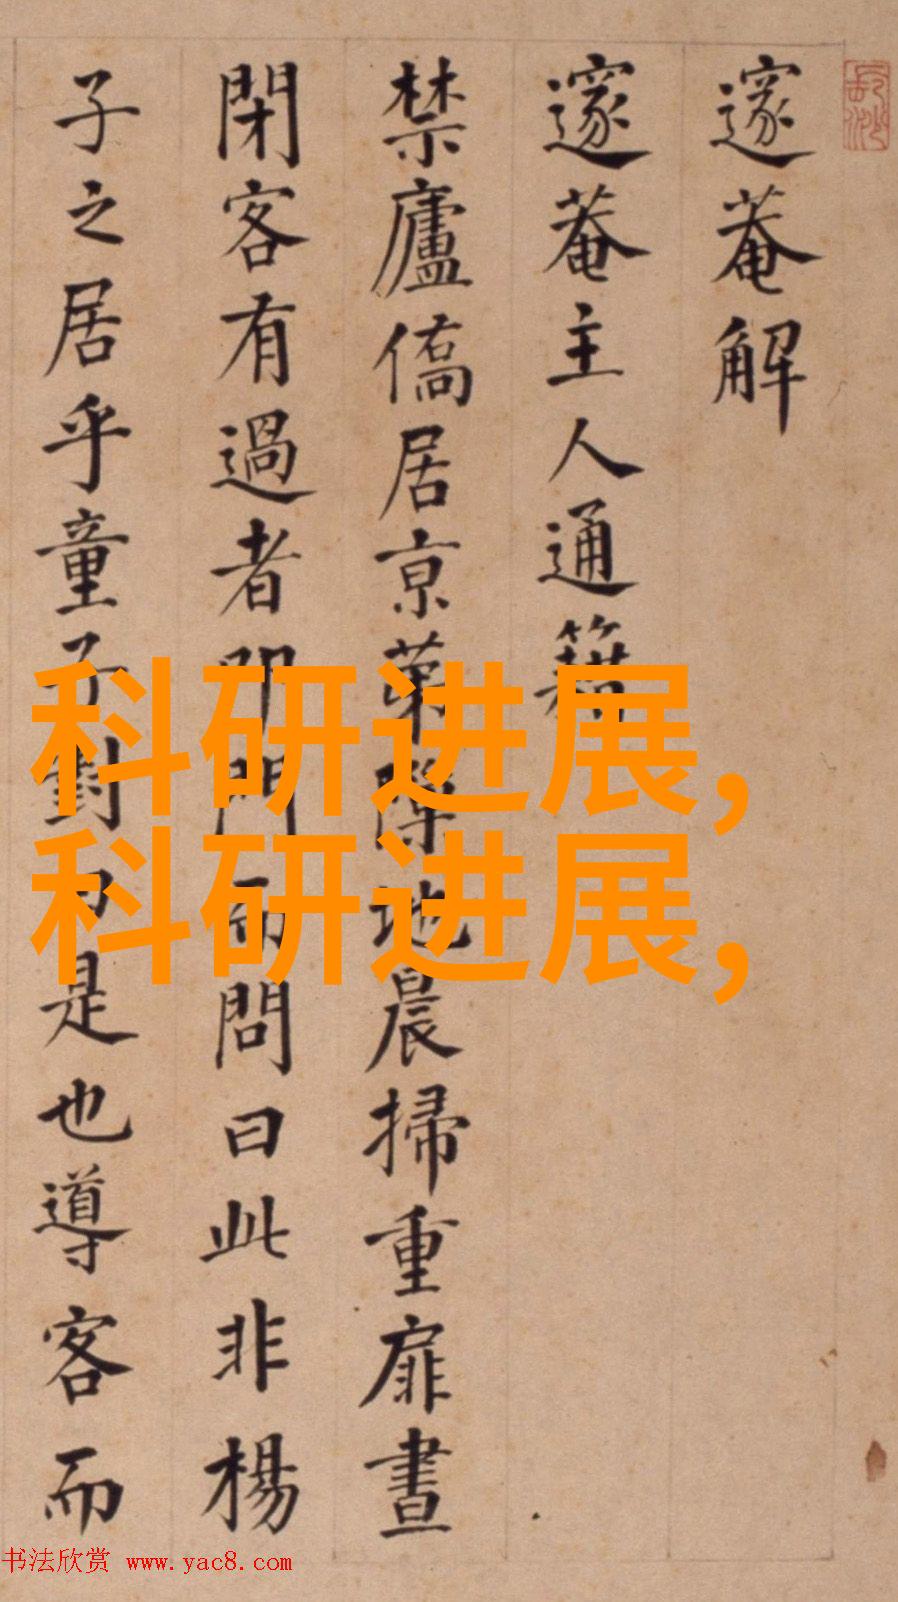 邃菴解
邃菴主人通籍
禁廬僑居京第隙地晨掃重扉晝
閉客有過者叩門而問曰此非楊
子之居乎童子對曰是也導客而
科研进展,
科研进展,
书法欣赏 www.yac8.com